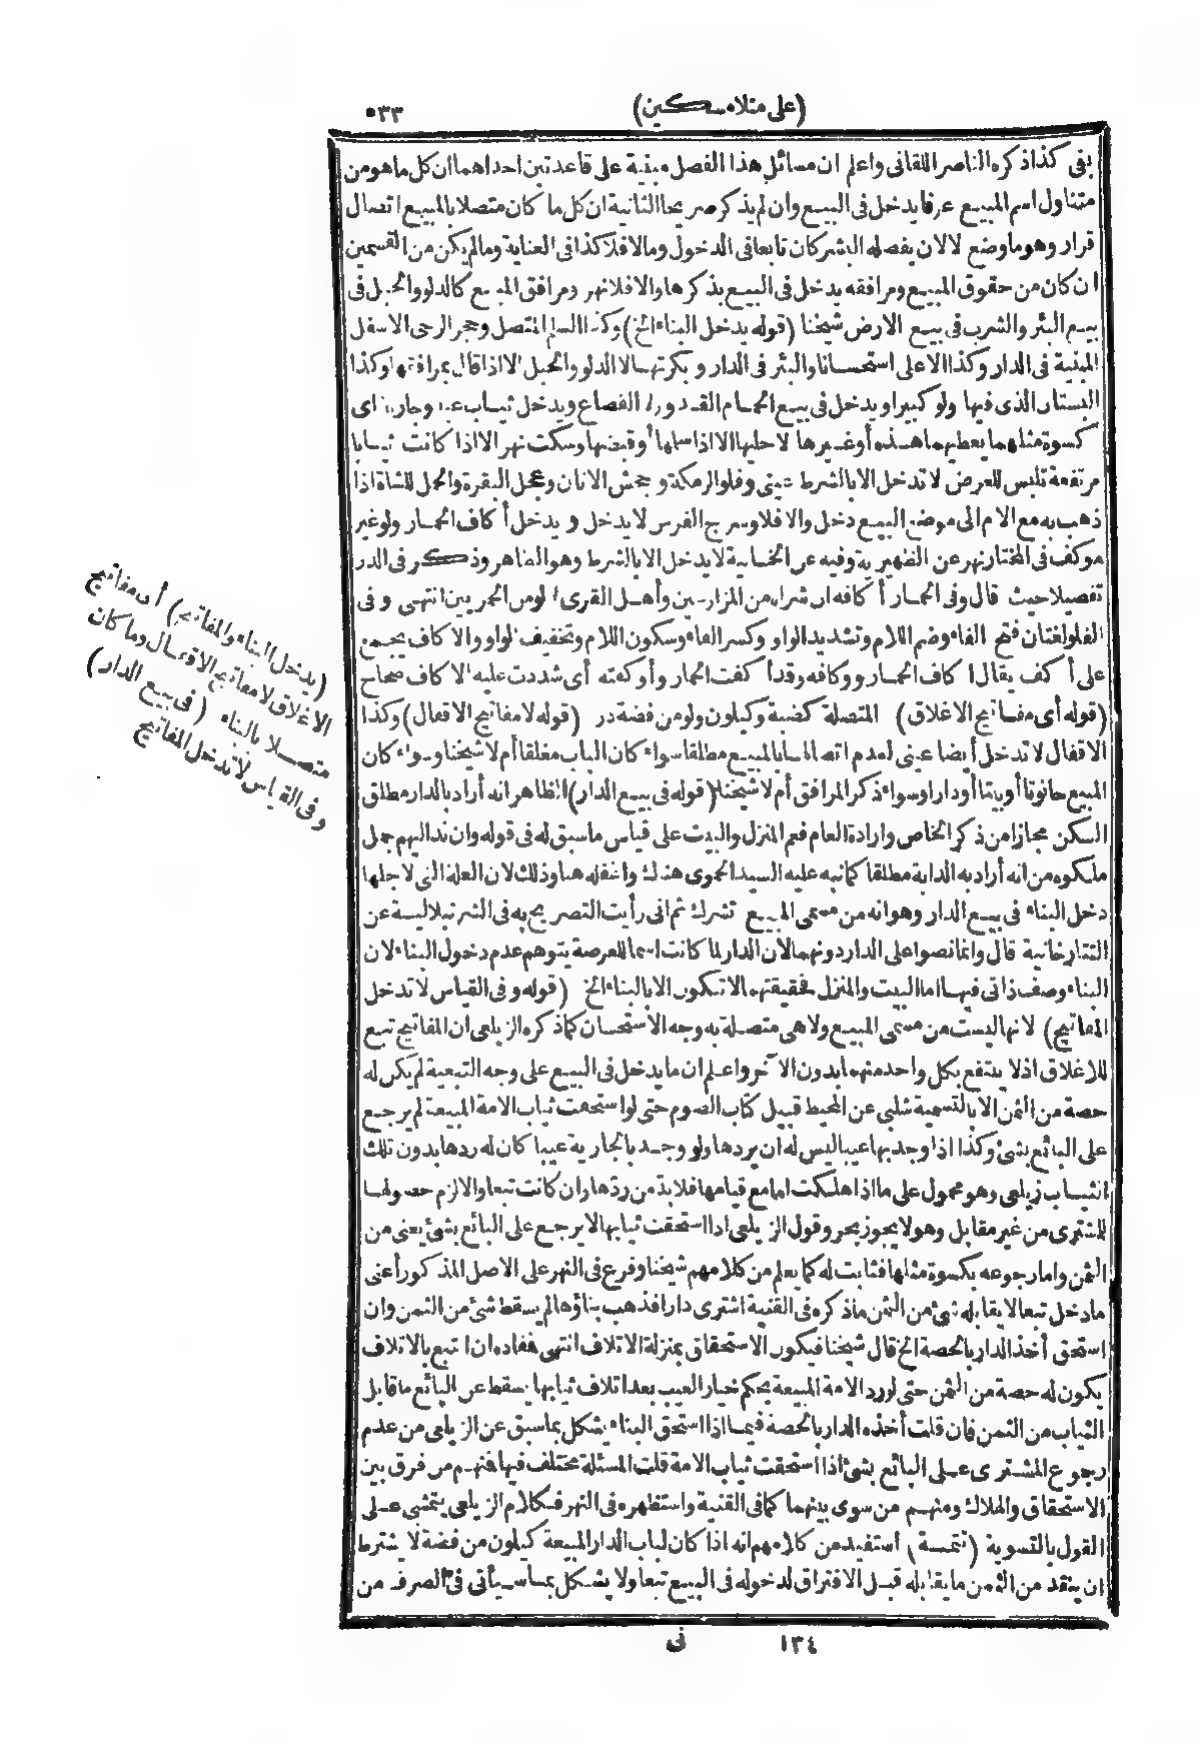 (على منلا مسكين)
٥٣٣
بقى كذا ذكره الناصر اللقانى واعلم ان مسائل هذا الفصل مبنية على قاعدتين احداهما ان كل ما هو من
متناول اسم المبيع عرفا يدخل فى البيع وان لم يذكر صريحا الثانية ان كل ما كان متصلا بالمبيع اتصال
قرار وهو ما وضع لا لان يفصله البشر كان تابعا فى الدخول ومالا فلا كذا فى العناية ومالم يكن من القسمين
ان كان من حقوق المبيع ومرافقه يدخل فى البيع بذكرها والا فلا نهر ومرافق المبيع كالدلو والحبل فى
بيع البئر والشرب فى بيع الارض شيخنا (قوله يدخل البناء الخ) وكذا السلم المتصل وحجر الرحى الاسفل
المبنية فى الدار وكذا الاعلى استحسانا والبئر فى الدار وبكرتها لا الدلو والحبل الا اذا قال بمرافقها وكذا
البستان الذى فيها ولو كبيرا ويدخل فى بيع الحمام القدور لا القصاع ويدخل ثياب عبد وجارية اى
كسوة مثلهما يعطيهما هذه أو غيرها لا حليها الا اذا سلمها أو قبضها وسكت نهر الا اذا كانت ثيابا
مرتفعة تلبس للعرض لا تدخل الا بالشرط عينى وفلو الرمكة وجحش الاتان وعجل البقرة والحمل للشاة اذا
ذهب به مع الام الى موضع البيع دخل والا فلا وسرج الفرس لا يدخل ويدخل أكاف الحمار ولو غير
موكف فى المختار نهر عن الظهيرية وفيه عن الخانية لا يدخل الا بالشرط وهو الظاهر وذكر فى الدر
تفصيلا حيث قال وفى الحمار أكافه ان شراه من المزارعين وأهل القرى لا لو من الحمريين انتهى وفى
الفلو لغتان فتح الفاء وضم اللام وتشديد الواو وكسر الفاء وسكون اللام وتخفيف الواو والاكاف يجمع
على أكف يقال اكاف الحمار ووكافه وقد أكفت الحمار وأوكفته أى شددت عليه الاكاف صحاح
(قوله أى مفاتيح الاغلاق) المتصلة كضبة وكيلون ولو من فضة در (قوله لا مفاتيح الاقفال) وكذا
الاقفال لا تدخل أيضا عينى لعدم اتصالها بالمبيع مطلقا سواء كان الباب مغلقا أم لا شيخنا وسواء كان
المبيع حانوتا أو بيتا أو دارا وسواء ذكر المرافق أم لا شيخنا (قوله فى بيع الدار) الظاهر انه أراد بالدار مطلق
السكن مجازا من ذكر الخاص وارادة العام فعم المنزل والبيت على قياس ما سبق له فى قوله وان ند اليهم جمل
ملكوه من انه أراد به الدابة مطلقا كما نبه عليه السيد الحموى هناك واغفله هنا وذلك لان العلة التى لاجلها
دخل البناء فى بيع الدار وهو انه من مسمى المبيع تشترك ثم انى رأيت التصريح به فى الشرنبلالية عن
التتارخانية قال وانما نصوا على الدار دونهما لان الدار لما كانت اسما للعرصة يتوهم عدم دخول البناء لان
البناء وصف ذاتى فيها اما البيت والمنزل فحقيقتهما لا تتكون الا بالبناء الخ (قوله وفى القياس لا تدخل
المفاتيح) لانها ليست من مسمى المبيع ولا هى متصلة به وجه الاستحسان كما ذكره الزيلعى ان المفاتيح تبع
للاغلاق اذ لا ينتفع بكل واحد منهما بدون الآخر واعلم ان ما يدخل فى البيع على وجه التبعية لم يكن له
حصة من الثمن الا بالتسمية شلبى عن المحيط قبيل كتاب الصوم حتى لو استحقت ثياب الامة المبيعة لم يرجع
على البائع بشئ وكذا اذا وجد بها عيبا ليس له ان يردها ولو وجد بالجارية عيبا كان له ردها بدون تلك
الثياب زيلعى وهو محمول على ما اذا هلكت اما مع قيامها فلا بد من ردها وان كانت تبعا والا لزم حصولها
للمشترى من غير مقابل وهو لا يجوز بحر وقول الزيلعى اذا استحقت ثيابها لا يرجع على البائع بشئ يعنى من
الثمن واما رجوعه بكسوة مثلها فثابت له كما يعلم من كلامهم شيخنا وفرع فى النهر على الاصل المذكور أعنى
ما دخل تبعا لا يقابله شئ من الثمن ما ذكره فى القنية اشترى دارا فذهب بناؤها لم يسقط شئ من الثمن وان
استحق أخذ الدار بالحصة الخ قال شيخنا فيكون الاستحقاق بمنزلة الاتلاف انتهى فمفاده ان التبع بالاتلاف
يكون له حصة من الثمن حتى لو رد الامة المبيعة بحكم خيار العيب بعد اتلاف ثيابها يسقط عن البائع ما قابل
الثياب من الثمن فان قلت أخذه الدار بالحصة فيما اذا استحق البناء يشكل بما سبق عن الزيلعى من عدم
رجوع المشترى على البائع بشئ اذا استحقت ثياب الامة قلت المسئلة مختلف فيها فمنهم من فرق بين
الاستحقاق والهلاك ومنهم من سوى بينهما كما فى القنية واستظهره فى النهر فكلام الزيلعى يتمشى على
القول بالتسوية (تتمة) استفيد من كلامهم انه اذا كان لباب الدار المبيعة كيلون من فضة لا يشترط
ان ينقد من الثمن ما يقابله قبل الافتراق لدخوله فى البيع تبعا ولا يشكل بما سيأتى فى الصرف من
(يدخل البناء والمفاتيح) أى مفاتيح
الاغلاق لا مفاتيح الاقفال وما كان
متصلا بالبناء (فى بيع الدار)
وفى القياس لا تدخل المفاتيح
١٣٤
نى